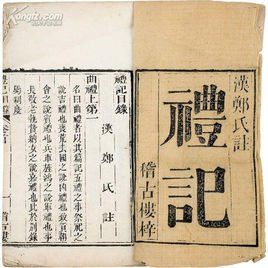 漢鄭氏註
禮記
稽古樓梓
禮記目錄
漢 鄭氏 註
曲禮上第一
名曰曲禮者以其篇記五禮之事祭祀之
說吉禮也喪荒去國之說凶禮也致貢朝
會之說賓禮也兵車旌鴻之說軍禮也事
長敬老執贄納女之說嘉禮也此於別錄
屬制度